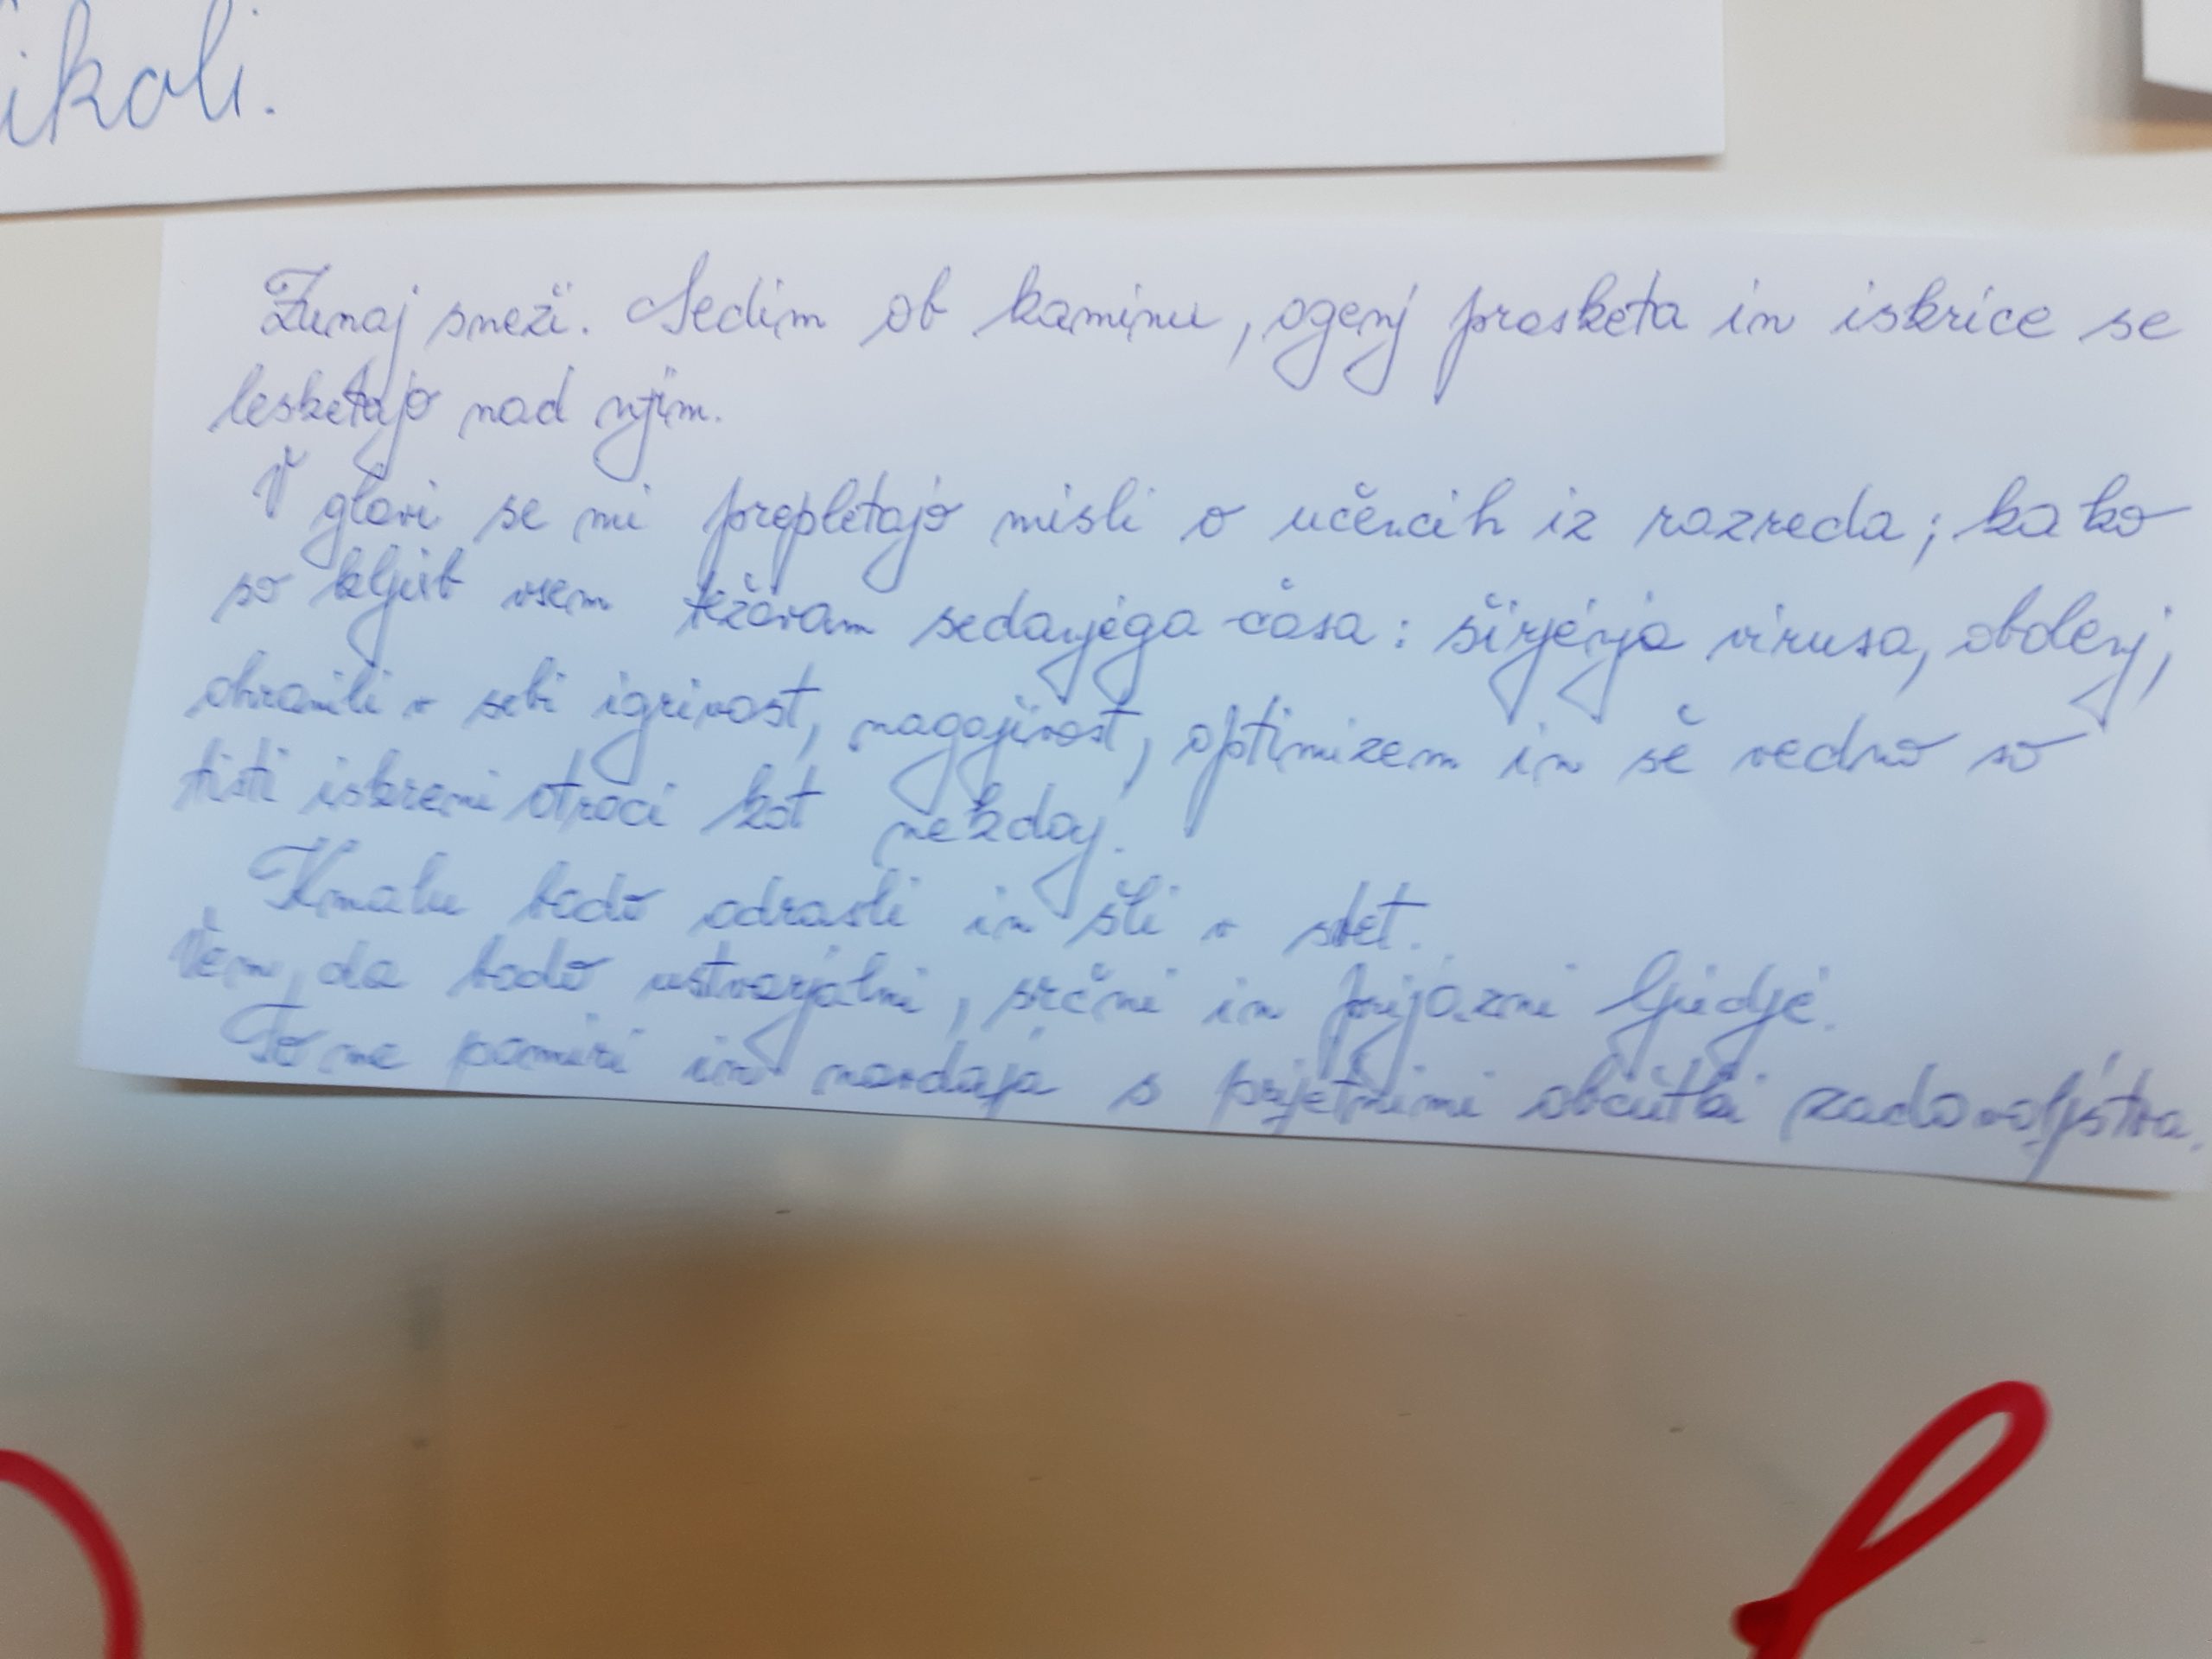 ikoli.
Zunaj sneži. Sedim ob kaminu, ogenj prasketa in iskrice se
lesketajo nad njim.
V glavi se mi prepletajo misli o učencih iz razreda; kako
so kljub vsem težavam sedanjega časa: širjenja virusa, obolenj,
ohranili v sebi igrivost, nagajivost, optimizem in še vedno so
tisti iskreni otroci kot nekdaj.
Kmalu bodo odrasli in šli v svet.
Vem, da bodo ustvarjalni, srčni in prijazni ljudje.
To me pomiri in navdaja s prijetnimi občutki zadovoljstva.